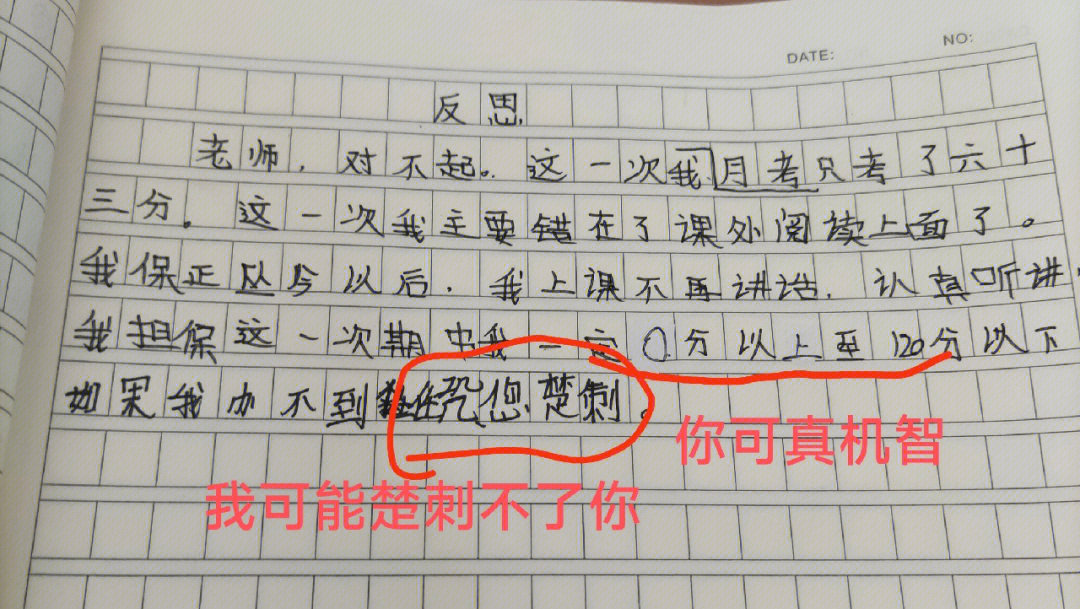 NO:
DATE:
反思
老师，对不起。这一次我月考只考了六十
三分。这一次我主要错在了课外阅读上面了。
我保正从今以后．我上课不再讲话．认真听讲
我担保这一次期中我一定0分以上至120分以下
如果我办不到任凭您楚刺。
你可真机智
我可能楚刺不了你